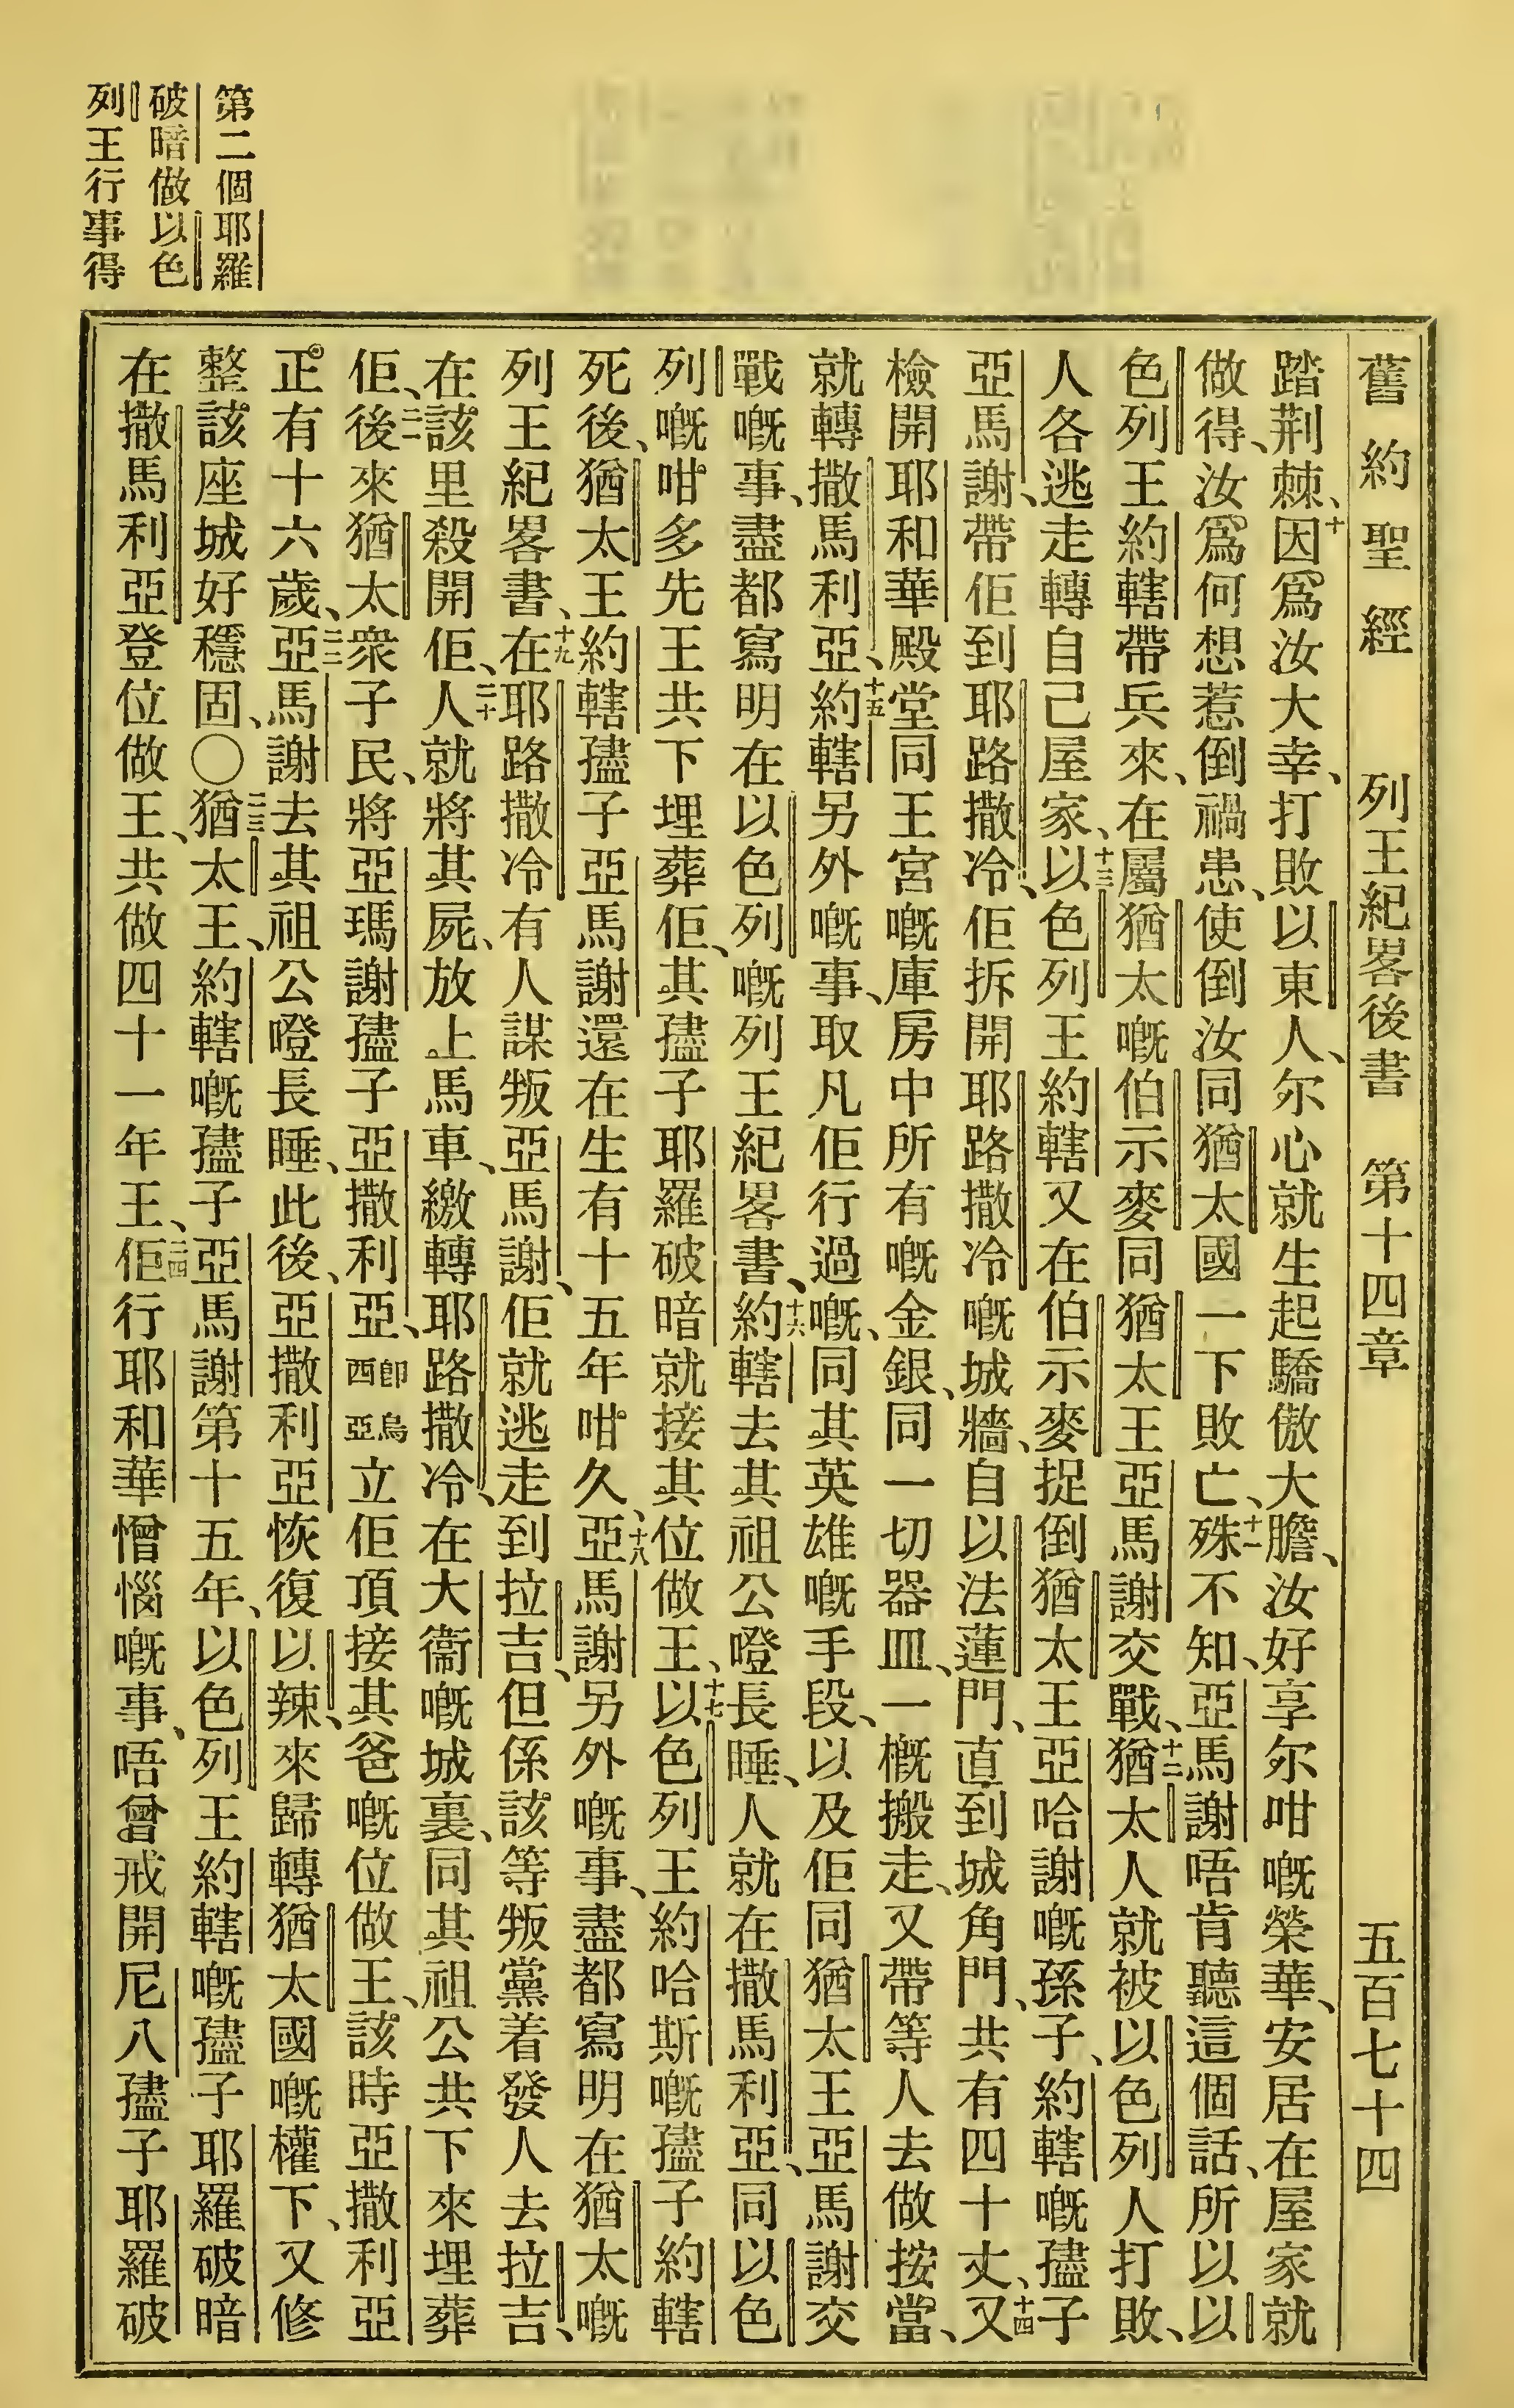 舊約聖經　列王紀畧後書　第十四章　五百七十四
踏荆棘、十因爲汝大幸、打敗以東人、尔心就生起驕傲大膽、汝好享尔咁嘅榮華、安居在屋家就
做得、汝爲何想惹倒禍患、使倒汝同猶太國一下敗亡、十一殊不知、亞馬謝唔肯聽這個話、所以以
色列王約轄帶兵來、在屬猶太嘅伯示麥同猶太王亞馬謝交戰、十二猶太人就被以色列人打敗、
人各逃走轉自己屋家、十三以色列王約轄又在伯示麥捉倒猶太王亞哈謝嘅孫子、約轄嘅孻子
亞馬謝、帶佢到耶路撒冷、佢拆開耶路撒冷嘅城牆、自以法蓮門、直到城角門、共有四十丈、十四又
檢開耶和華殿堂同王宮嘅庫房中所有嘅金銀、同一切器皿、一概搬走、又帶等人去做按當、
就轉撒馬利亞、十五約轄另外嘅事、取凡佢行過嘅、同其英雄嘅手段、以及佢同猶太王亞馬謝交
戰嘅事、盡都寫明在以色列嘅列王紀畧書、十六約轄去其祖公嶝長睡、人就在撒馬利亞、同以色
列嘅咁多先王共下埋葬佢、其孻子耶羅破暗就接其位做王、十七以色列王約哈斯嘅孻子約轄
死後、猶太王約轄孻子亞馬謝還在生有十五年咁久、十八亞馬謝另外嘅事、盡都寫明在猶太嘅
列王紀畧書、十九在耶路撒冷有人謀叛亞馬謝、佢就逃走到拉吉、但係該等叛黨着發人去拉吉、
在該里殺開佢、二十人就將其屍、放上馬車、繳轉耶路撒冷、在大衞嘅城裏、同其祖公共下來埋葬
佢、二一後來猶太衆子民、將亞瑪謝孻子亞撒利亞、卽烏西亞立佢頂接其爸嘅位做王、該時亞撒利亞
正有十六歲、二二亞馬謝去其祖公嶝長睡、此後、亞撒利亞恢復以辣、來歸轉猶太國嘅權下、又修
整該座城好穩固、〇二三猶太王、約轄嘅孻子亞馬謝第十五年、以色列王約轄嘅孻子耶羅破暗
在撒馬利亞登位做王、共做四十一年王、二四佢行耶和華憎惱嘅事、唔曾戒開尼八孻子耶羅破
第二個耶羅
破暗做以色
列王行事得